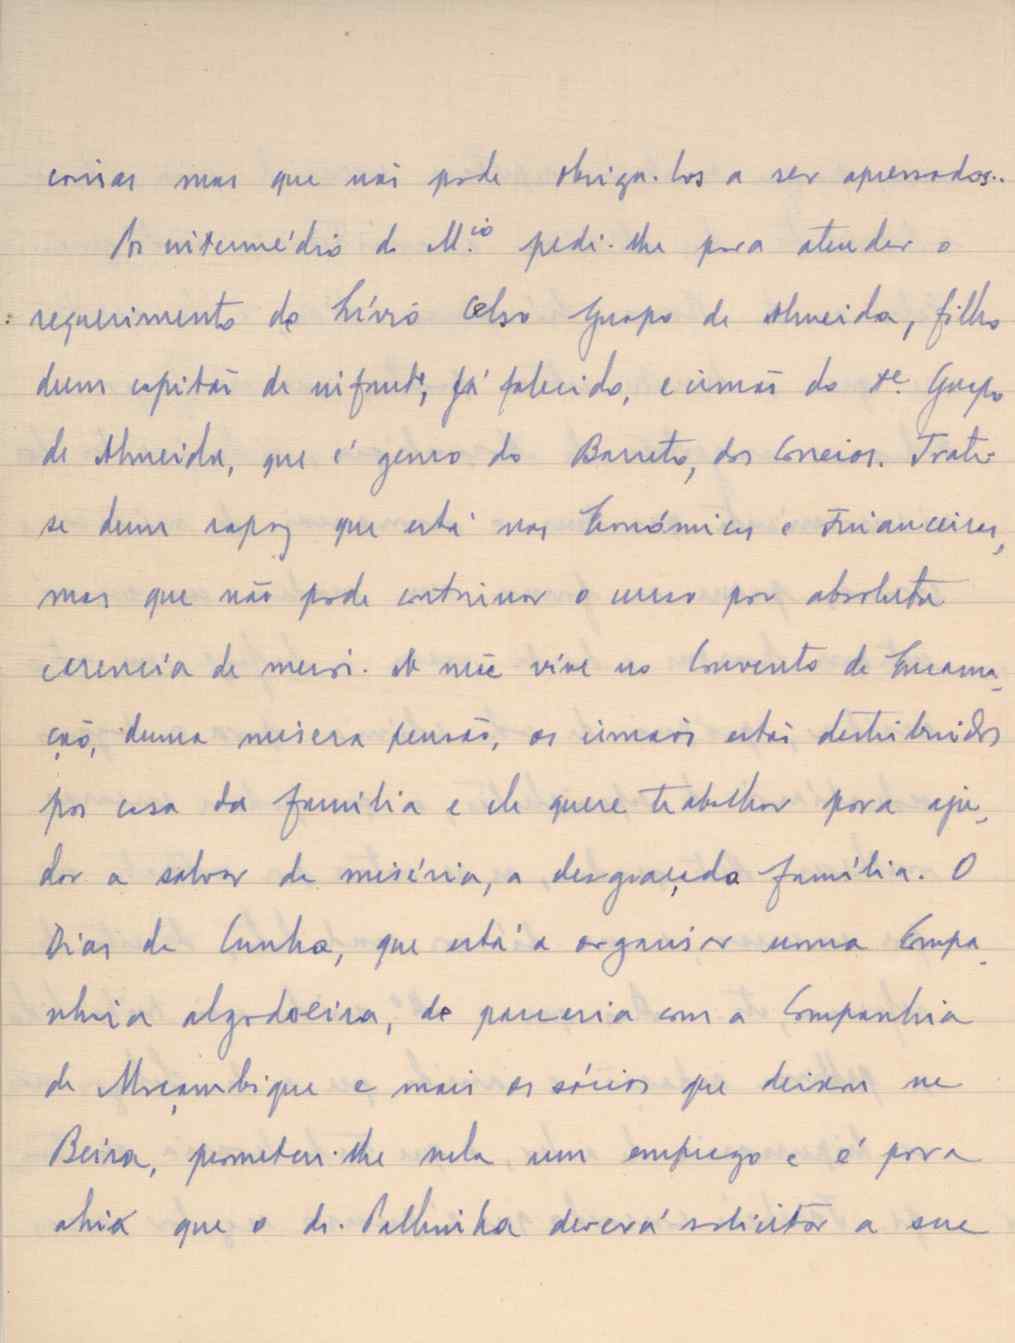 coisas mas que não pode obriga-los a ser apressados..
Ao intermédio do M.cio pedi-lhe para atender o
requerimento do Lívio Celso Guapo de Almeida, filho
dum capitão de infant.ª, já falecido, e irmão do te. Guapo
de Almeida, que é genro do Barreto, dos Correios. Trata-
se dum rapaz que está nas Económicas e Financeiras,
mas que não pode continuar o curso por absoluta
carencia de meios. A mãe vive no Convento da Encarna-
ção, duma misera pensão, os irmãos estão destribuidos
por casa da família e ele quere trabalhar para aju-
dar a salvar da miséria, a desgraçada família. O
Dias da Cunha, que está a organisar uma Compa-
nhia algodoeira, de parceria com a Companhia
de Moçambique e mais os sócios que deixou na
Beira, prometeu-lhe nela um emprego e é para
ahia que o dr. Palhinha deverá solicitar a sua